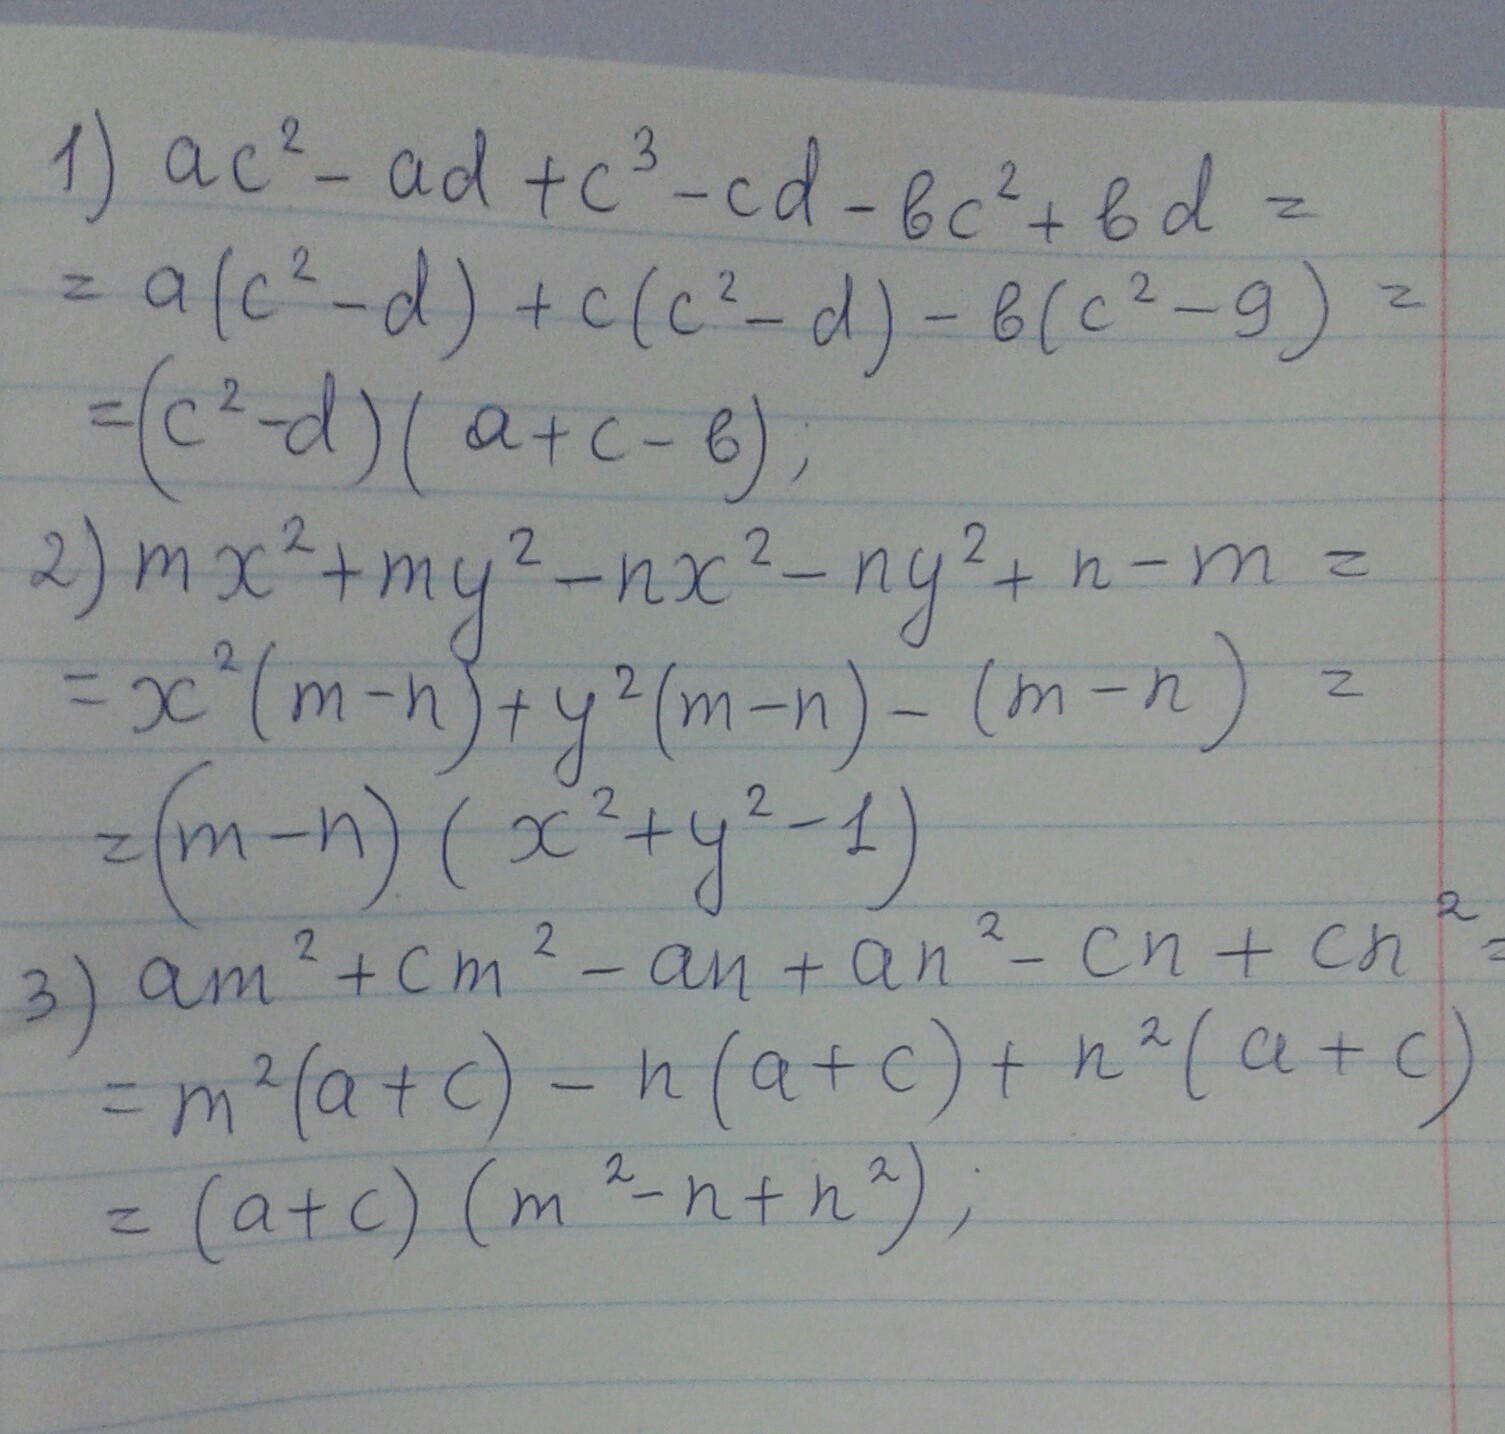 1) ac² - ad + c³ - cd - вc² + вd =
= a(c² - d) + c(c² - d) - в(c² - g) =
= (c² - d)(a + c - в);
2) mx² + my² - nx² - ny² + n - m =
= x²(m - n) + y²(m - n) - (m - n) =
= (m - n)(x² + y² - 1)
3) am² + cm² - an + an² - cn + cn² =
= m²(a + c) - n(a + c) + n²(a + c)
= (a + c)(m² - n + n²);